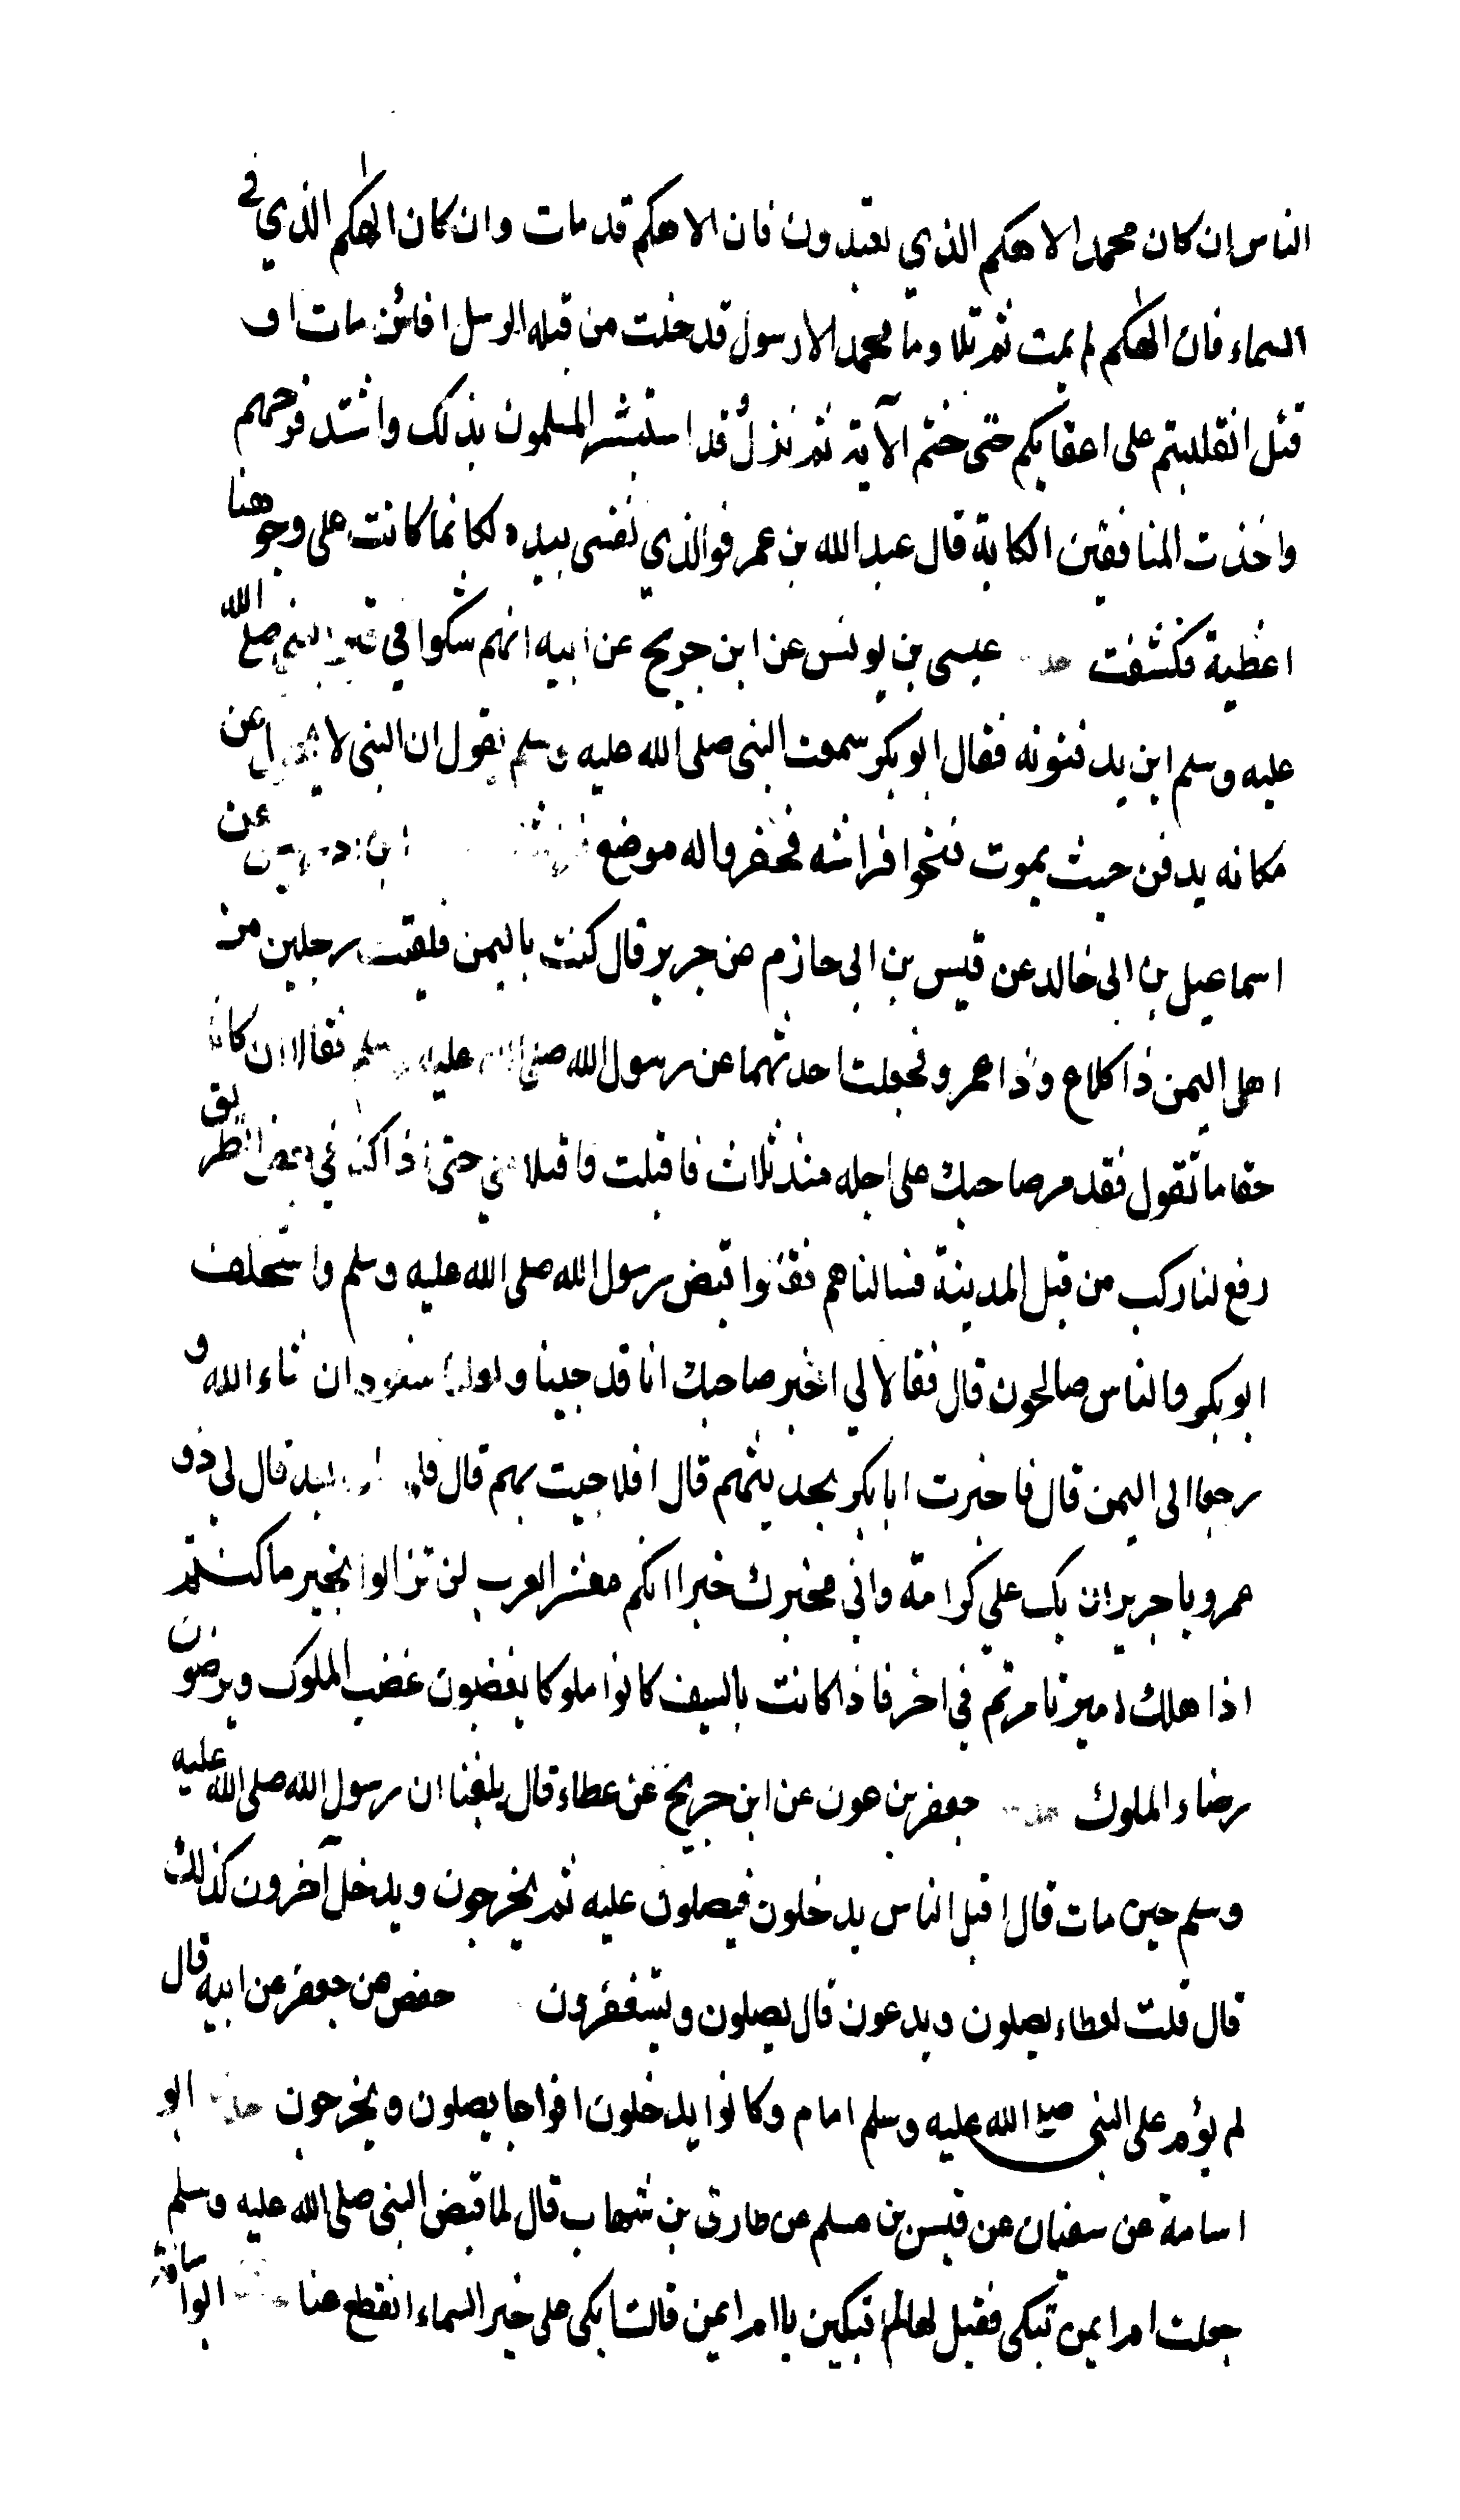 الناس ان كان محمد الاهكم الذي تعبدون فان الاهكم قد مات وان كان الهكم الذي في
السماء فان الهكم لم يمت ثم تلا وما محمد الا رسول قد خلت من قبله الرسل افائن مات او
قتل انقلبتم على اعقابكم حتى ختم الآية ثم نزل قد استبشر المسلمون بذلك واشتد فرحهم
واخذت المنافقين الكابة قال عبد الله بن عمر فوالذي نفسى بيده لكانما كانت على وجوهنا
اغطية فكشفت عيسى بن يونس عن ابن جريج عن ابيه انهم شكوا في قبر النبي صلى الله
عليه وسلم اين يدفنونه فقال ابو بكر سمعت النبى صلى الله عليه وسلم يقول ان النبى لا يحول عن
مكانه يدفن حيث يموت فنحوا فراشه فحفروا له موضع فراشه ابن ادريس عن
اسماعيل بن ابى خالد عن قيس بن ابى حازم عن جرير قال كنت باليمن فلقيت رجلين من
اهل اليمن ذا كلاع وذا عمرو فجعلت احدثهما عن رسول الله صلى الله عليه وسلم فقالا ان كان
حقا ما تقول فقد مر صاحبك على اجله منذ ثلاث فاقبلت واقبلا معي حتى اذا كنا في بعض الطريق
رفع لنا ركب من قبل المدينة فسالناهم فقالوا قبض رسول الله صلى الله عليه وسلم واستخلف
ابو بكر والناس صالحون قال فقالا لي اخبر صاحبك انا قد جينا ولعلنا سنعود ان شاء الله و
رجعا الى اليمن قال فاخبرت ابا بكر بحديثهم قال افلا جيت بهم قال فلما بعد قال لي ذو
عمرو يا جرير ان بك على كرامة واني مخبرك خبرا انكم معشر العرب لن تزالوا بخير ما كنتم
اذا هلك امير تامرتم في اخر فاذا كانت بالسيف كانوا ملوكا يغضبون غضب الملوك ويرضون
رضاء الملوك جعفر بن عون عن ابن جريج عن عطاء قال بلغنا ان رسول الله صلى الله عليه
وسلم حين مات قال اقبل الناس يدخلون فيصلون عليه ثم يخرجون ويدخل آخرون كذلك
قال قلت لعطاء يصلون ويدعون قال يصلون ويستغفرون حفص عن جعفر عن ابيه قال
لم يؤم على النبى صلى الله عليه وسلم امام وكانوا يدخلون افواجا يصلون ويخرجون حدثنا ابو
اسامة عن سفيان عن قيس بن مسلم عن طارق بن شهاب قال لما قبض النبى صلى الله عليه وسلم
جعلت ام ايمن تبكى فقيل لها لم تبكين يا ام ايمن قالت ابكى على خبر السماء انقطع عنا ابو اسامة